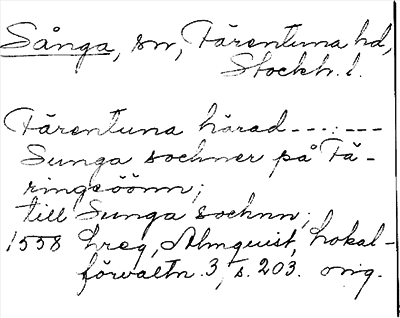 Sånga, sn, Färentuna hd,
Stockh. l.
Färentuna härad---:---
Sunga sochner på Fä-
ringeöönn;
till Sunga sochnn;
1558 Lreg, Almquist, Lokal-
förvaltn. 3, s. 203. orig.